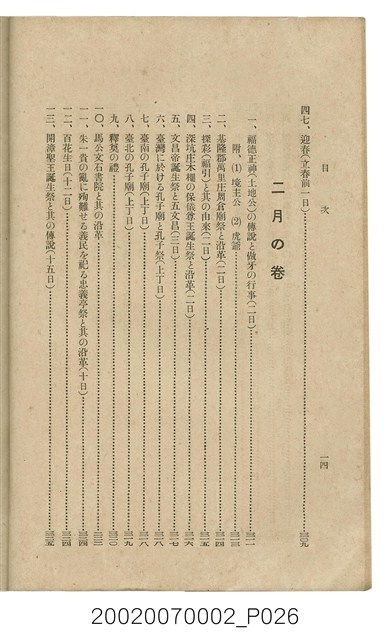 目次
一四
四七、迎春(立春前一日)
二月の卷
一、福德正神(土地公)の傳說と做牙の行事(二日)
附、(1) 境主公 (2) 虎爺
二、基隆郡萬里庄周倉廟祭と沿革(二日)
三、探彩(福引)と其の由來(二日)
四、深坑庄木柵の保儀尊王誕生祭と沿革(二日)
五、文昌帝誕生祭と五文昌(三日)
六、臺灣に於ける孔子廟と孔子祭(上丁日)
七、臺南の孔子廟(上丁日)
八、臺北の孔子廟(上丁日)
九、釋奠の禮
一〇、馬公文石書院と其の沿革
一一、朱一貴の亂に殉難せる義民を祀る忠義亭祭と其の沿革(十日)
一二、百花生日(十二日)
一三、開漳聖王誕生祭と其の傳說(十五日)
20020070002_P026